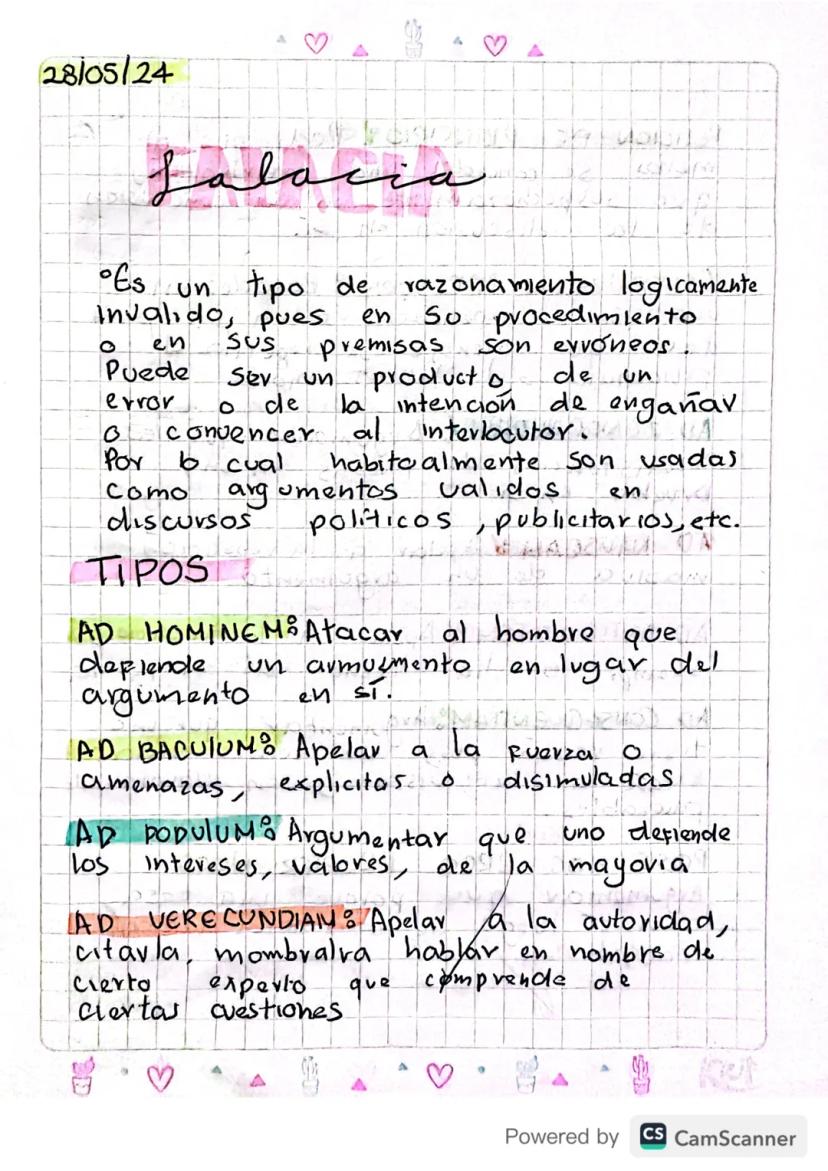 28/05/24
Falacia
°Es un tipo de razonamiento logicamente
invalido, pues en su procedimiento
o en sus premisas son erróneos.
Puede ser un producto de un
error o de la intención de engañar
o convencer al interlocutor.
Por lo cual habitualmente son usadas
como argumentos validos en
discursos políticos, publicitarios, etc.
TIPOS
AD HOMINEM: Atacar al hombre que
defiende un armuemento en lugar del
argumento en sí.
AD BACULUM: Apelar a la fuerza o
amenazas, explicitas o disimuladas
AD POPULUM: Argumentar que uno defiende
los intereses, valores, de la mayoria
AD VERECUNDIAM: Apelar a la autoridad,
citarla, mombralra hablar en nombre de
cierto experto que comprende de
ciertas cuestiones
Powered by CS CamScanner